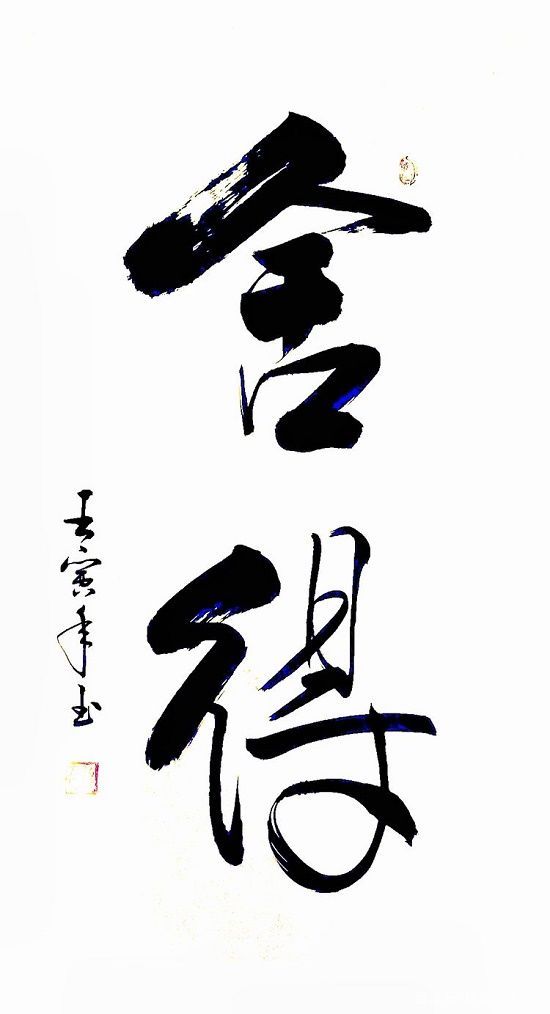 舍得
壬寅年玉